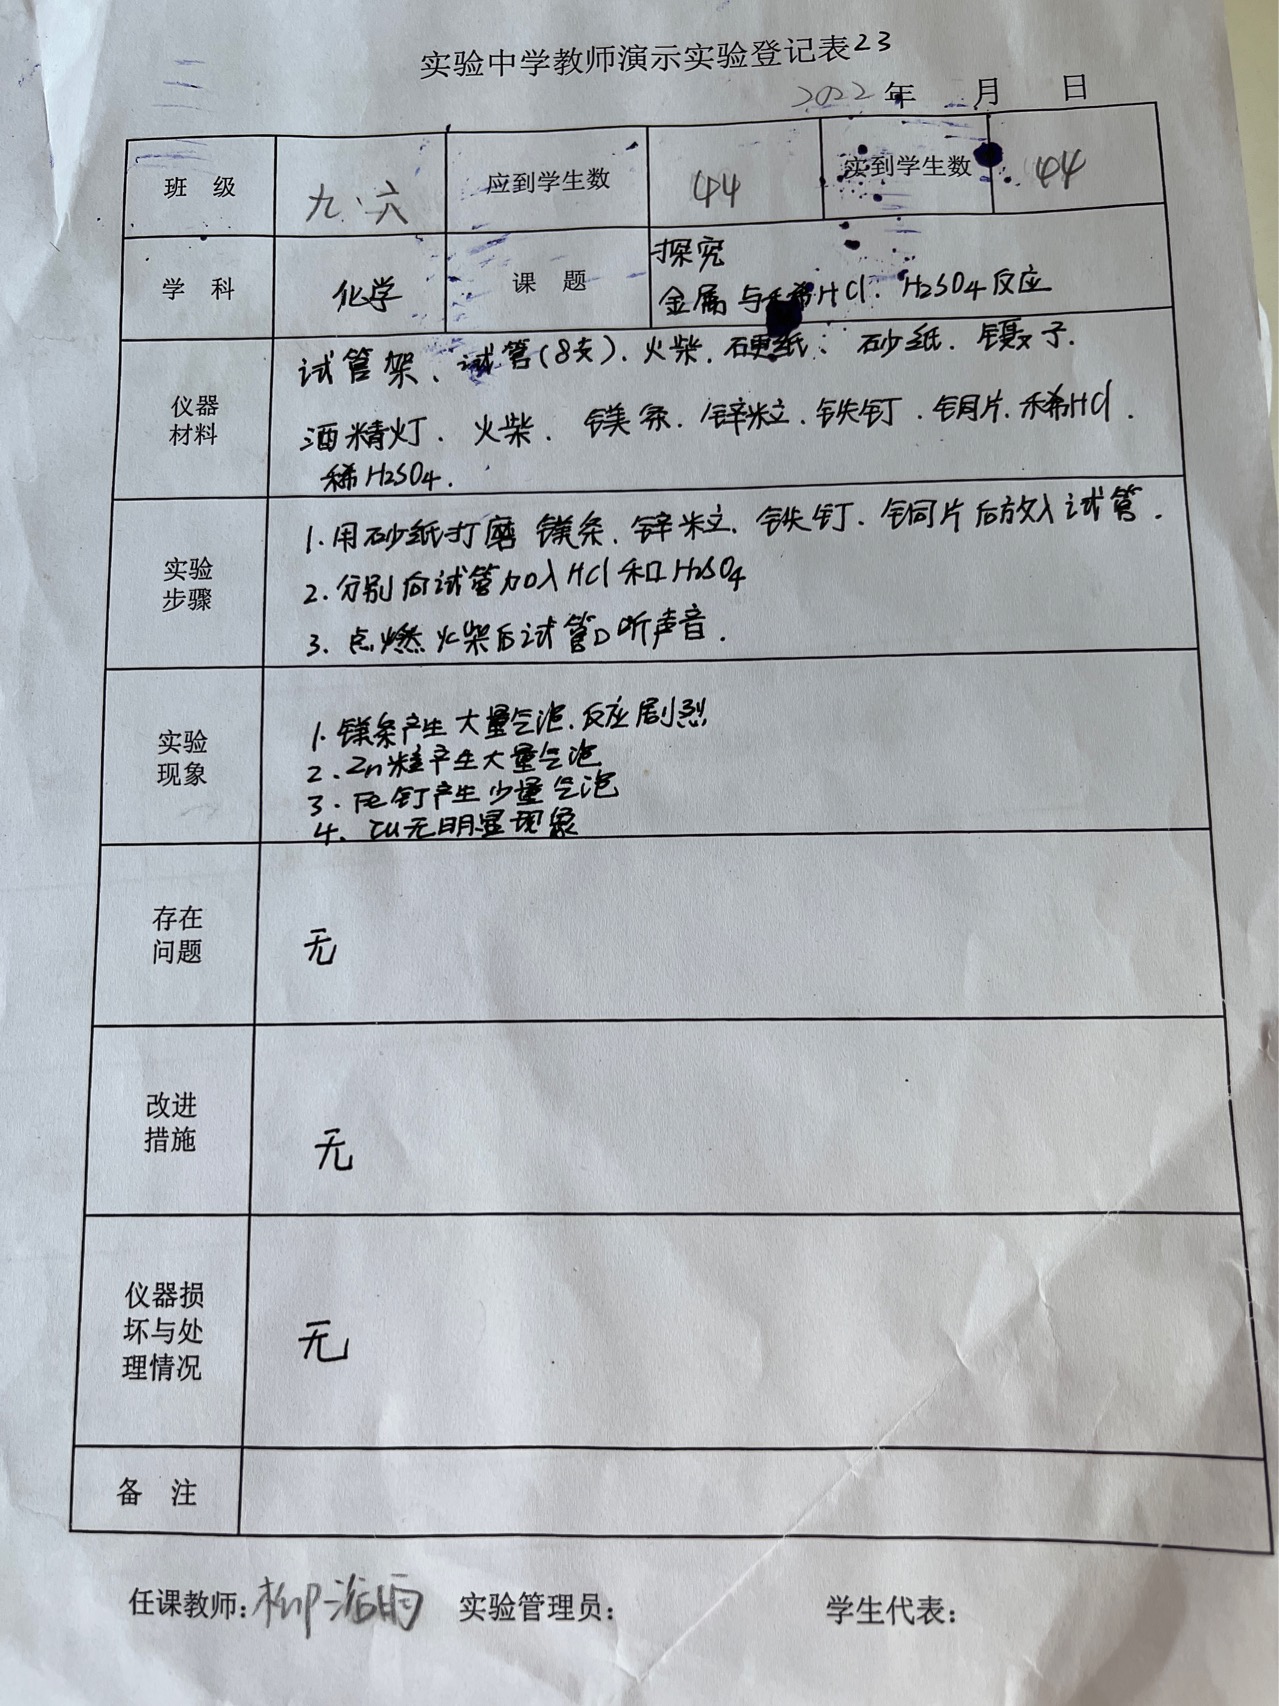 实验中学教师演示实验登记表23
2022年 月 日
班 级 九.六 应到学生数 44 实到学生数 44
学 科 化学 课 题 探究
金属与稀HCl. H2SO4反应
仪器
材料
试管架、试管(8支)、火柴、硬纸、砂纸、镊子.
酒精灯、火柴、镁条、锌粒、铁钉、铜片、稀HCl.
稀H2SO4.
实验
步骤
1.用砂纸打磨镁条、锌粒、铁钉、铜片后放入试管.
2.分别向试管加入HCl和H2SO4
3.点燃火柴后试管口听声音.
实验
现象
1.镁条产生大量气泡.反应剧烈
2.Zn粒产生大量气泡
3.Fe钉产生少量气泡
4.Cu无明显现象
存在
问题
无
改进
措施
无
仪器损
坏与处
理情况
无
备 注
任课教师: 实验管理员: 学生代表: